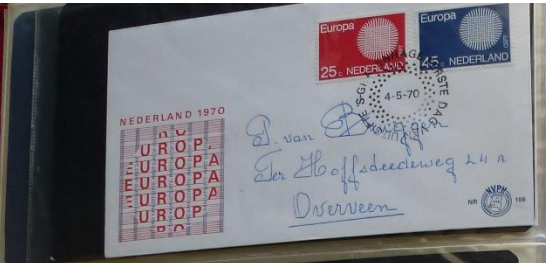 Europa
25c NEDERLAND
Europa
45c NEDERLAND
EERSTE DAG
4-5-70
NEDERLAND 1970
EUROPA
EUROPA
EUROPA
EUROPA
EUROPA
P. van Bruggen
Ter Hoffsteedeweg 24 A
Overveen
NR
NVPH
106